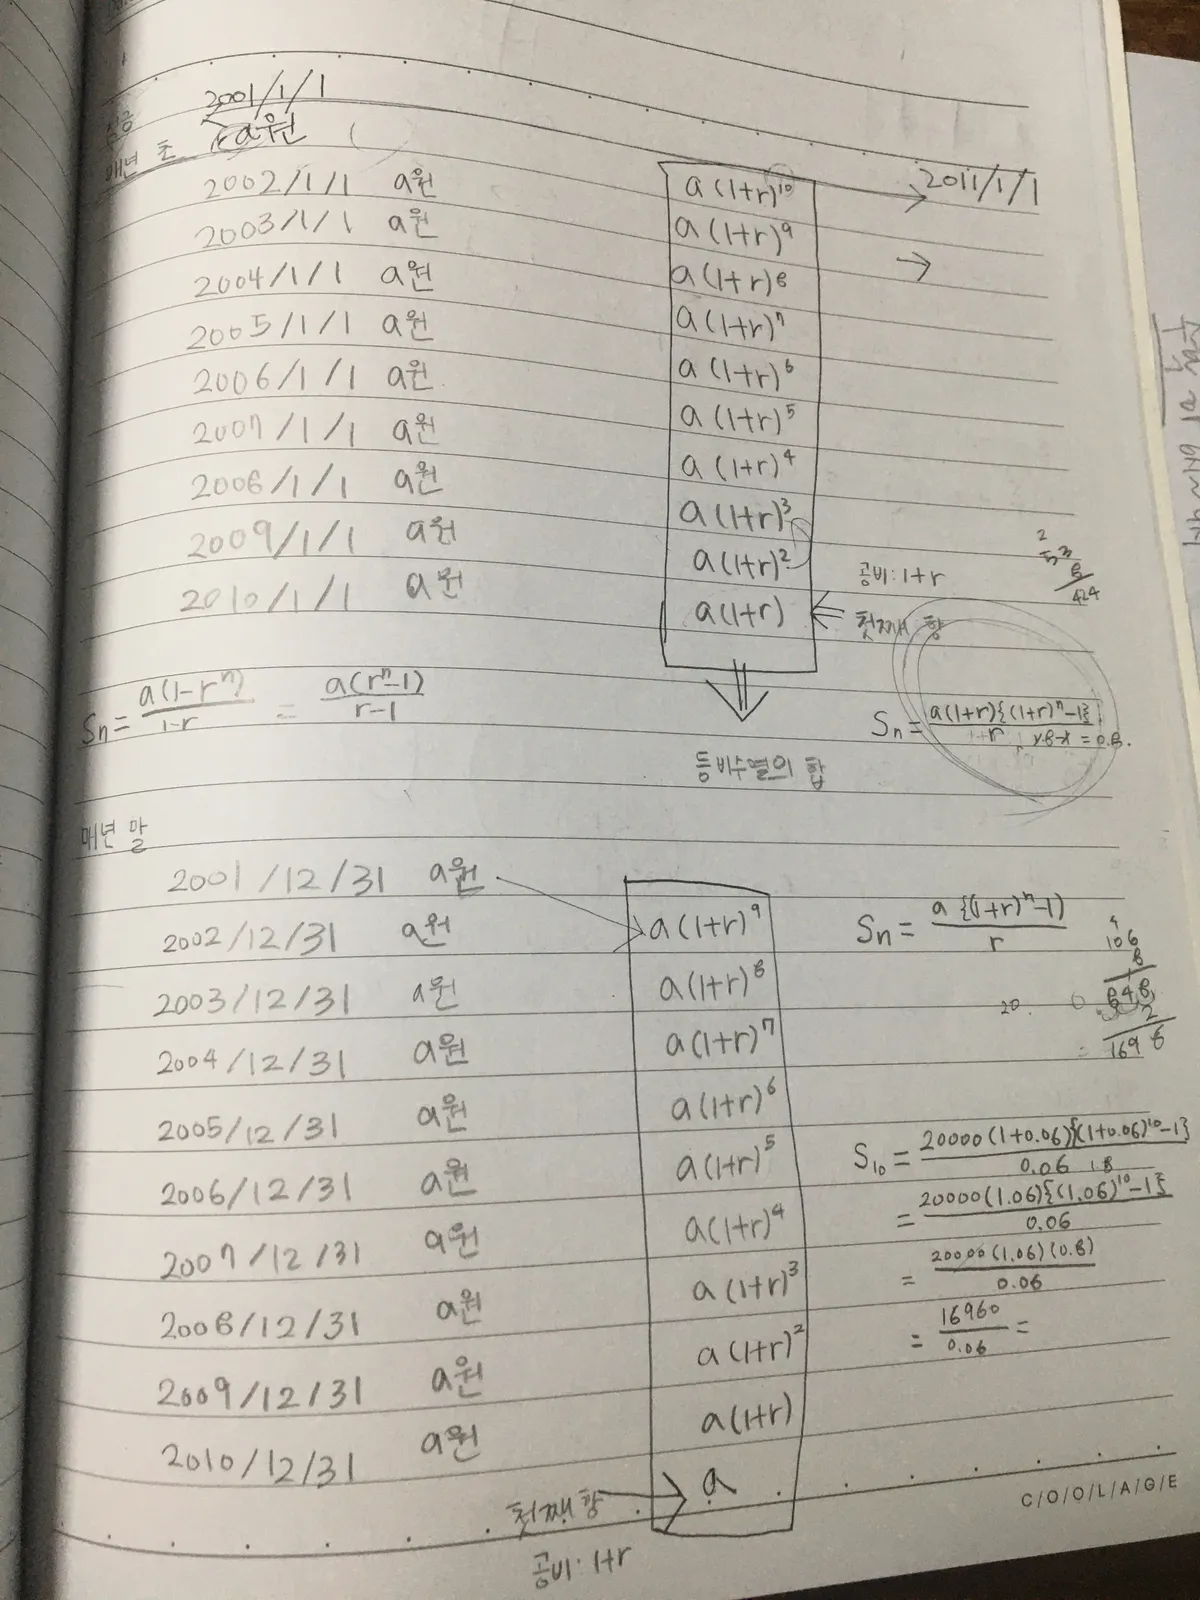 2001/1/1
매년 초 a원
2002/1/1 a원 a(1+r)¹⁰ → 2011/1/1
2003/1/1 a원 a(1+r)⁹
2004/1/1 a원 a(1+r)⁸ →
2005/1/1 a원 a(1+r)⁷
2006/1/1 a원 a(1+r)⁶
2007/1/1 a원 a(1+r)⁵
2008/1/1 a원 a(1+r)⁴
2009/1/1 a원 a(1+r)³
2010/1/1 a원 a(1+r)²
공비: 1+r
a(1+r) ← 첫째 항
53
8
424
Sn = a(1-rⁿ)/1-r = a(rⁿ-1)/r-1
Sn = a(1+r){(1+r)ⁿ-1}/r
1.8-1 = 0.8.
등비수열의 합
매년 말
2001/12/31 a원
2002/12/31 a원 a(1+r)⁹
Sn = a{(1+r)ⁿ-1)/r
2003/12/31 a원 a(1+r)⁸
2004/12/31 a원 a(1+r)⁷
2005/12/31 a원 a(1+r)⁶
2006/12/31 a원 a(1+r)⁵
2007/12/31 a원 a(1+r)⁴
2008/12/31 a원 a(1+r)³
2009/12/31 a원 a(1+r)²
2010/12/31 a원 a(1+r)
a
첫째 항
공비: 1+r
106
8
848
2
1696
20.
S₁₀ = 20000(1+0.06){(1+0.06)¹⁰-1}/0.06
1.8
= 20000(1.06){(1.06)¹⁰-1}/0.06
= 20000(1.06)(0.8)/0.06
= 16960/0.06 =
C/O/O/L/A/G/E